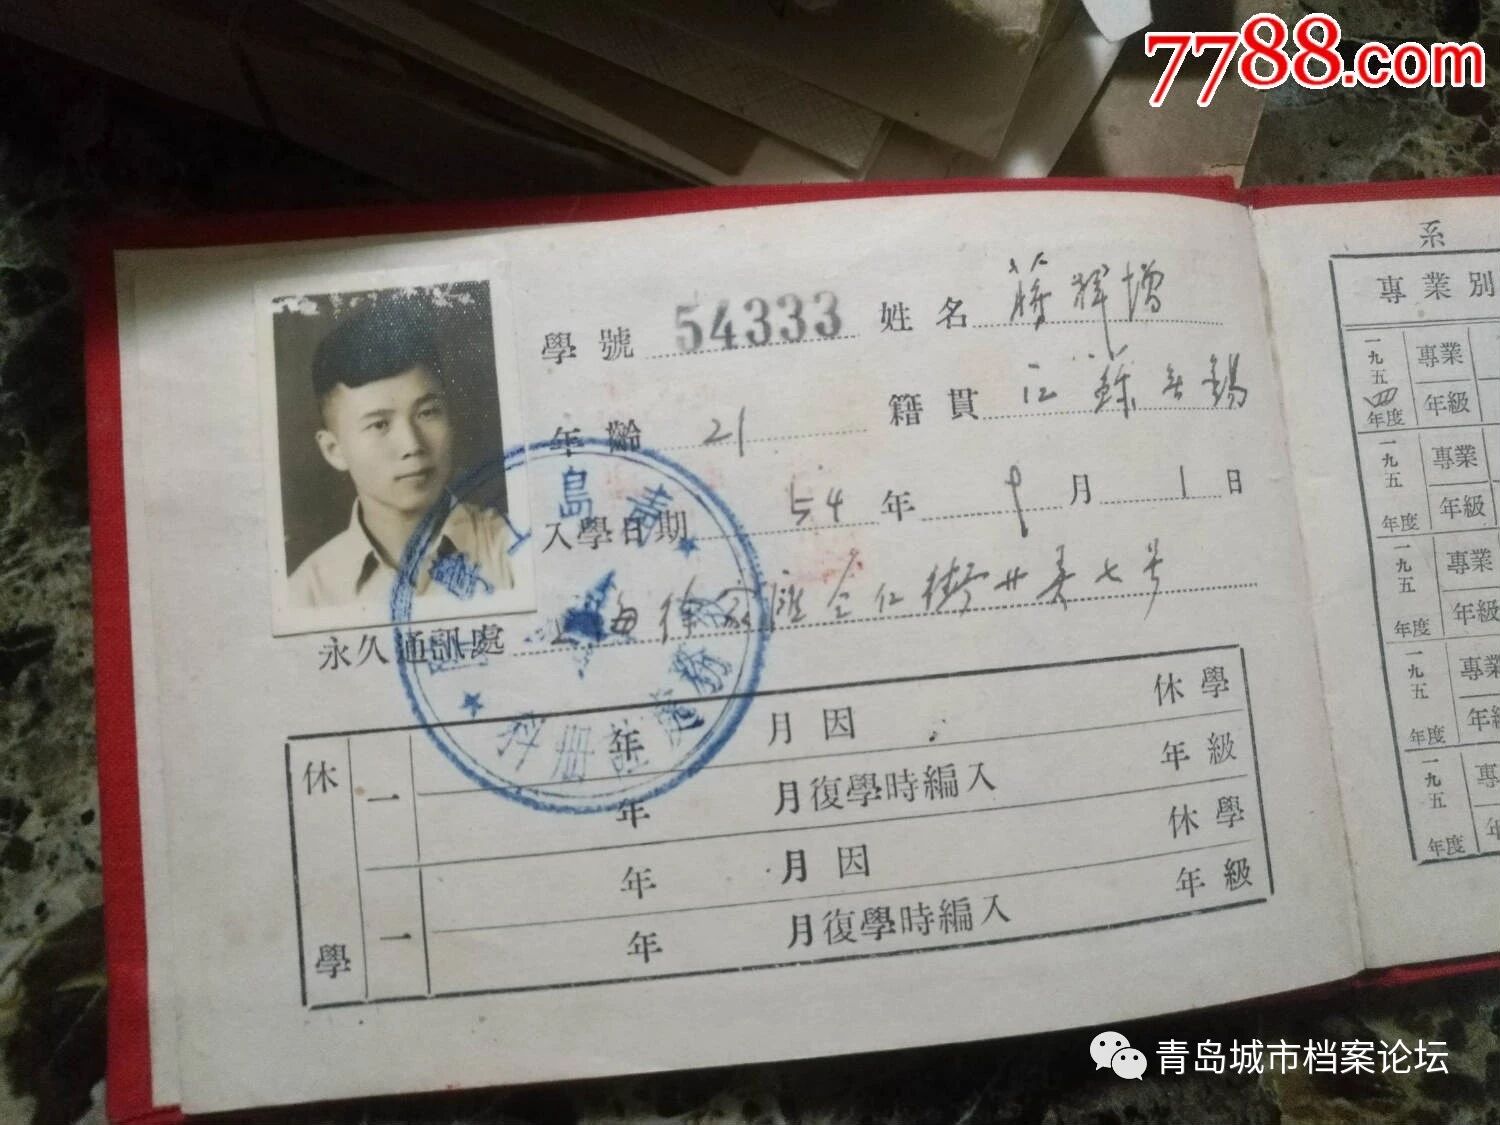 7788.com
學號 54333 姓名 蔣輝增
年齡 21 籍貫 江蘇无錫
入學日期 54 年 9 月 1 日
永久通訊處 上海徐家滙仝仁街廿弄七号
青島工學院
教務處註冊科
休學
一 年 月 因 休學
年 月復學時編入 年級
一 年 月 因 休學
年 月復學時編入 年級
系
專業別
一九五四年度 專業
年級
一九五 年度 專業
年級
一九五 年度 專業
年級
一九五 年度 專業
年級
一九五 年度
青岛城市档案论坛